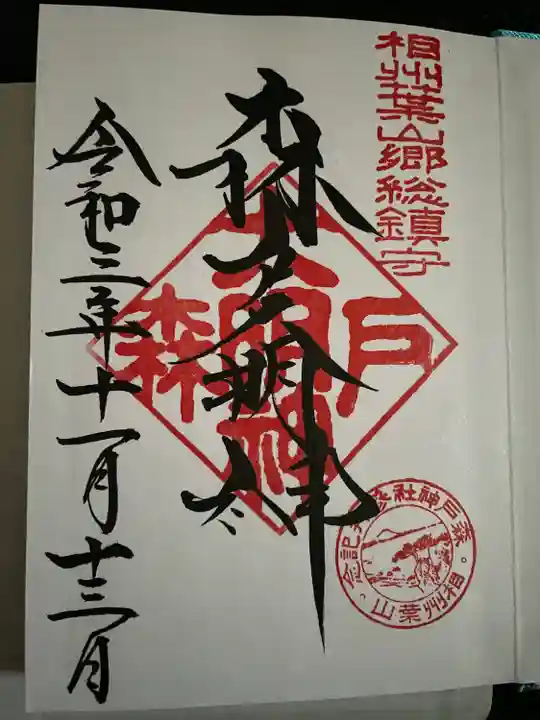 相州葉山郷総鎮守
森戸大明神
森戸
大明神
森戸神社参拝記念
相州葉山
令和三年十一月十三日